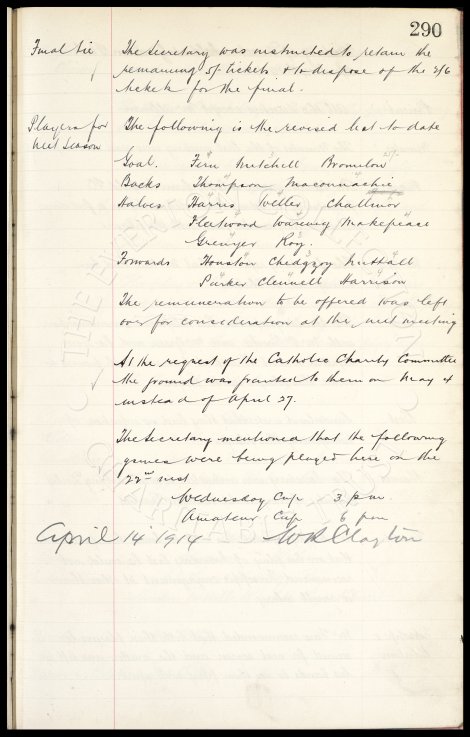 290
Final tie The Secretary was instructed to retain the
remaining 5/- tickets, & to dispose of the 2/6
tickets for the final.
Players for The following is the revised list to date
next season
Goal. Fern Mitchell Bromilow
Backs Thompson Maconnachie
Halves Harris Weller Challinor
Fleetwood Wareing Makepeace
Grenyer Roy.
Forwards Houston Chedgzoy Nuttall
Parker Clennell Harrison
The remuneration to be offered was left
over for consideration at the next meeting
At the request of the Catholic Charity Committee
the ground was granted to them on May 4
instead of April 27.
The Secretary mentioned that the following
games were being played here on the
22nd inst
Wednesday Cup 3 pm.
Amateur Cup 6 pm
April 14 1914 W R Clayton